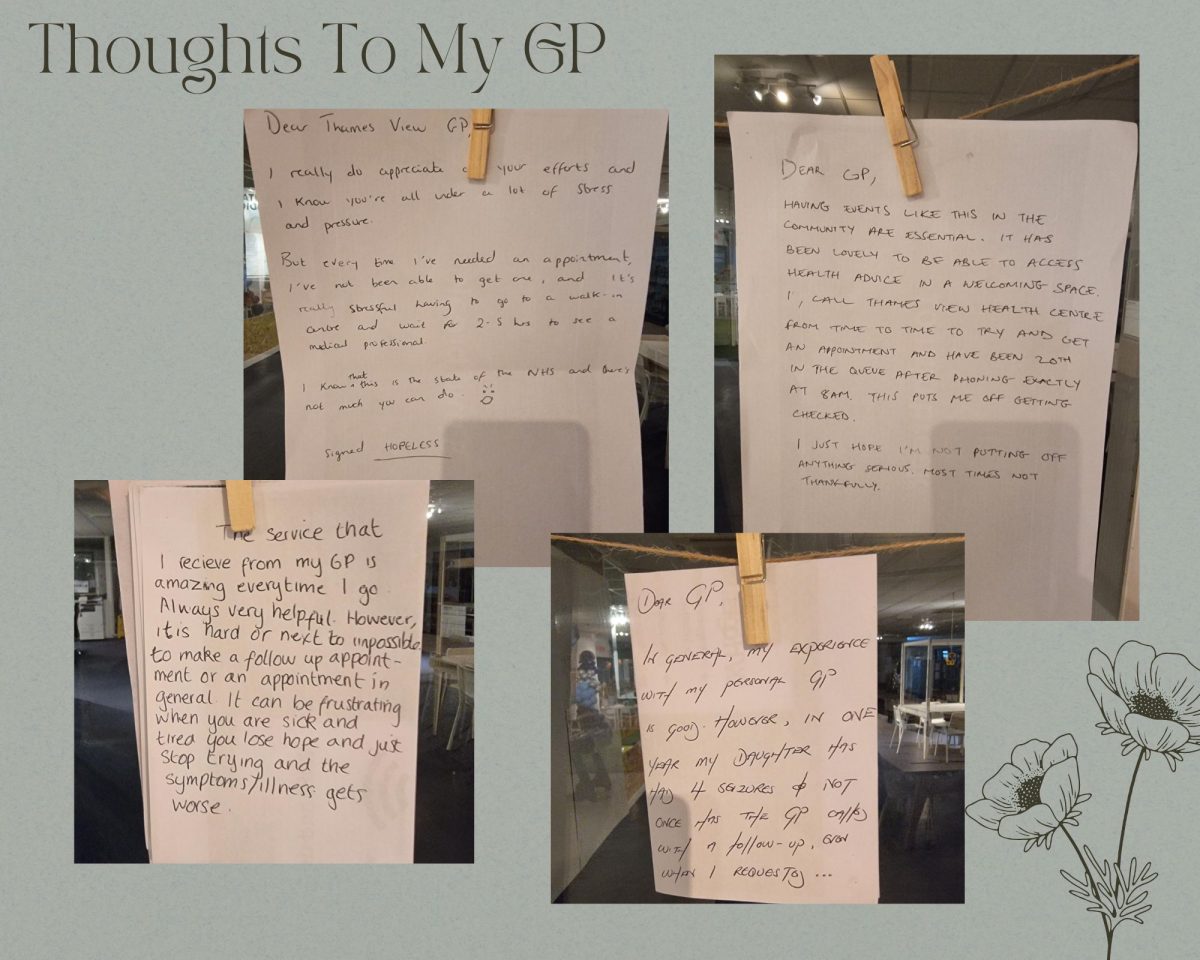 Thoughts To My GP
Dear Thames View GP,
I really do appreciate your efforts and
I know you're all under a lot of stress
and pressure.
But every time I've needed an appointment,
I've not been able to get one, and it's
really stressful having to go to a walk-in
centre and wait for 2-5 hrs to see a
medical professional.
I know that this is the state of the NHS and there's
not much you can do.
Signed HOPELESS
DEAR GP,
HAVING EVENTS LIKE THIS IN THE
COMMUNITY ARE ESSENTIAL. IT HAS
BEEN LOVELY TO BE ABLE TO ACCESS
HEALTH ADVICE IN A WELCOMING SPACE.
I, CALL THAMES VIEW HEALTH CENTRE
FROM TIME TO TIME TO TRY AND GET
AN APPOINTMENT AND HAVE BEEN 20TH
IN THE QUEUE AFTER PHONING EXACTLY
AT 8AM. THIS PUTS ME OFF GETTING
CHECKED.
I JUST HOPE I'M NOT PUTTING OFF
ANYTHING SERIOUS. MOST TIMES NOT
THANKFULLY.
The service that
I recieve from my GP is
amazing everytime I go.
Always very helpful. However,
it is hard or next to impossible
to make a follow up appoint-
ment or an appointment in
general. It can be frustrating
when you are sick and
tired you lose hope and just
stop trying and the
symptoms/illness gets
worse.
DEAR GP,
IN GENERAL, MY EXPERIENCE
WITH MY PERSONAL GP
IS GOOD. HOWEVER, IN ONE
YEAR MY DAUGHTER HAS
HAD 4 SEIZURES & NOT
ONCE HAS THE GP CALLED
WITH A FOLLOW-UP, EVEN
WHEN I REQUESTED ...